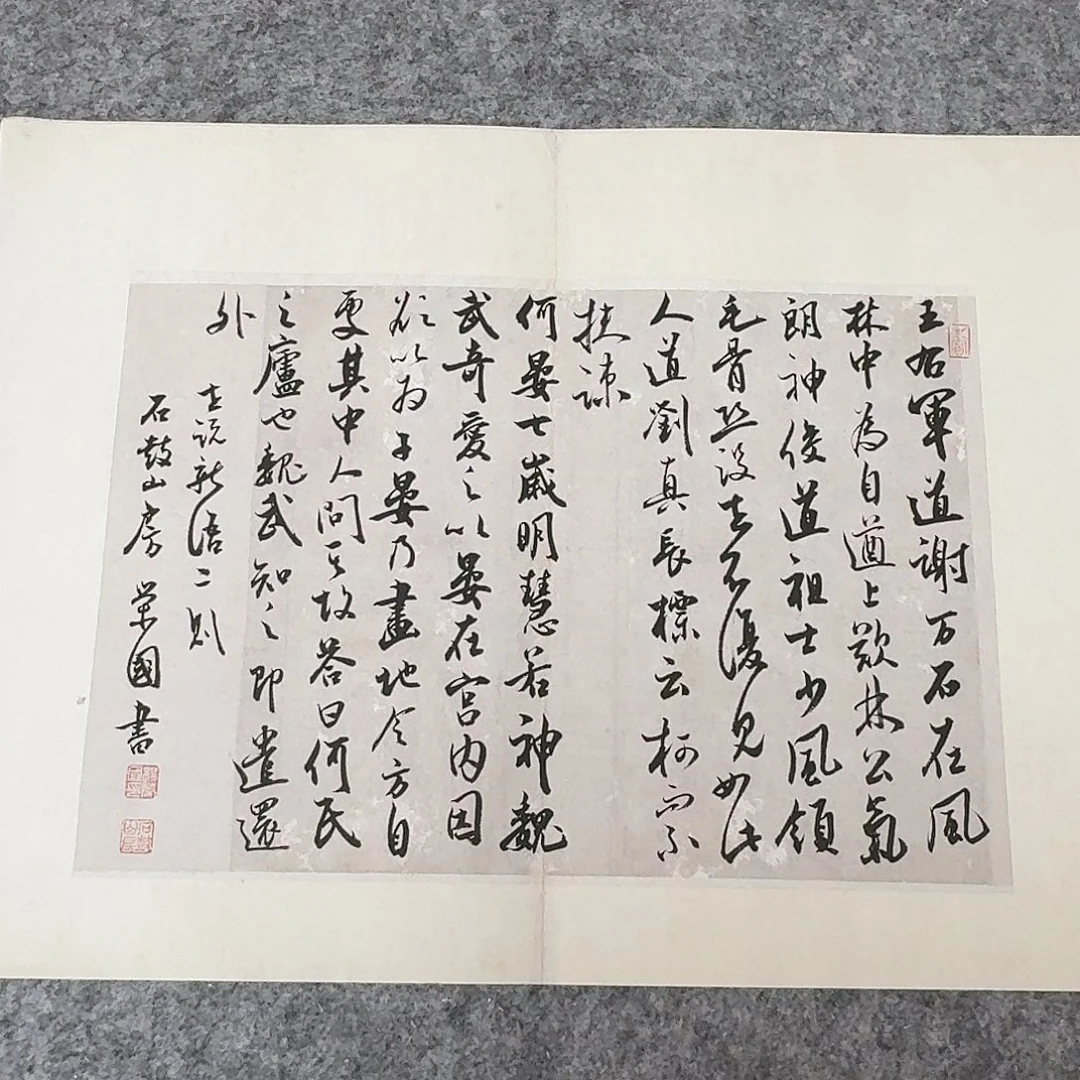 王右軍道謝万石在風
林中為自遒上歎林公氣
朗神俊道祖士少風領
毛骨恐沒世不復見如此
人道劉真長標云柯而不
扶疎
何晏七歲明慧若神魏
武奇愛之以晏在宮内因
欲以为子晏乃畫地令方自
處其中人問其故荅曰何氏
之廬也魏武知之即遣還
外
世説新語二則
石鼓山房榮國書